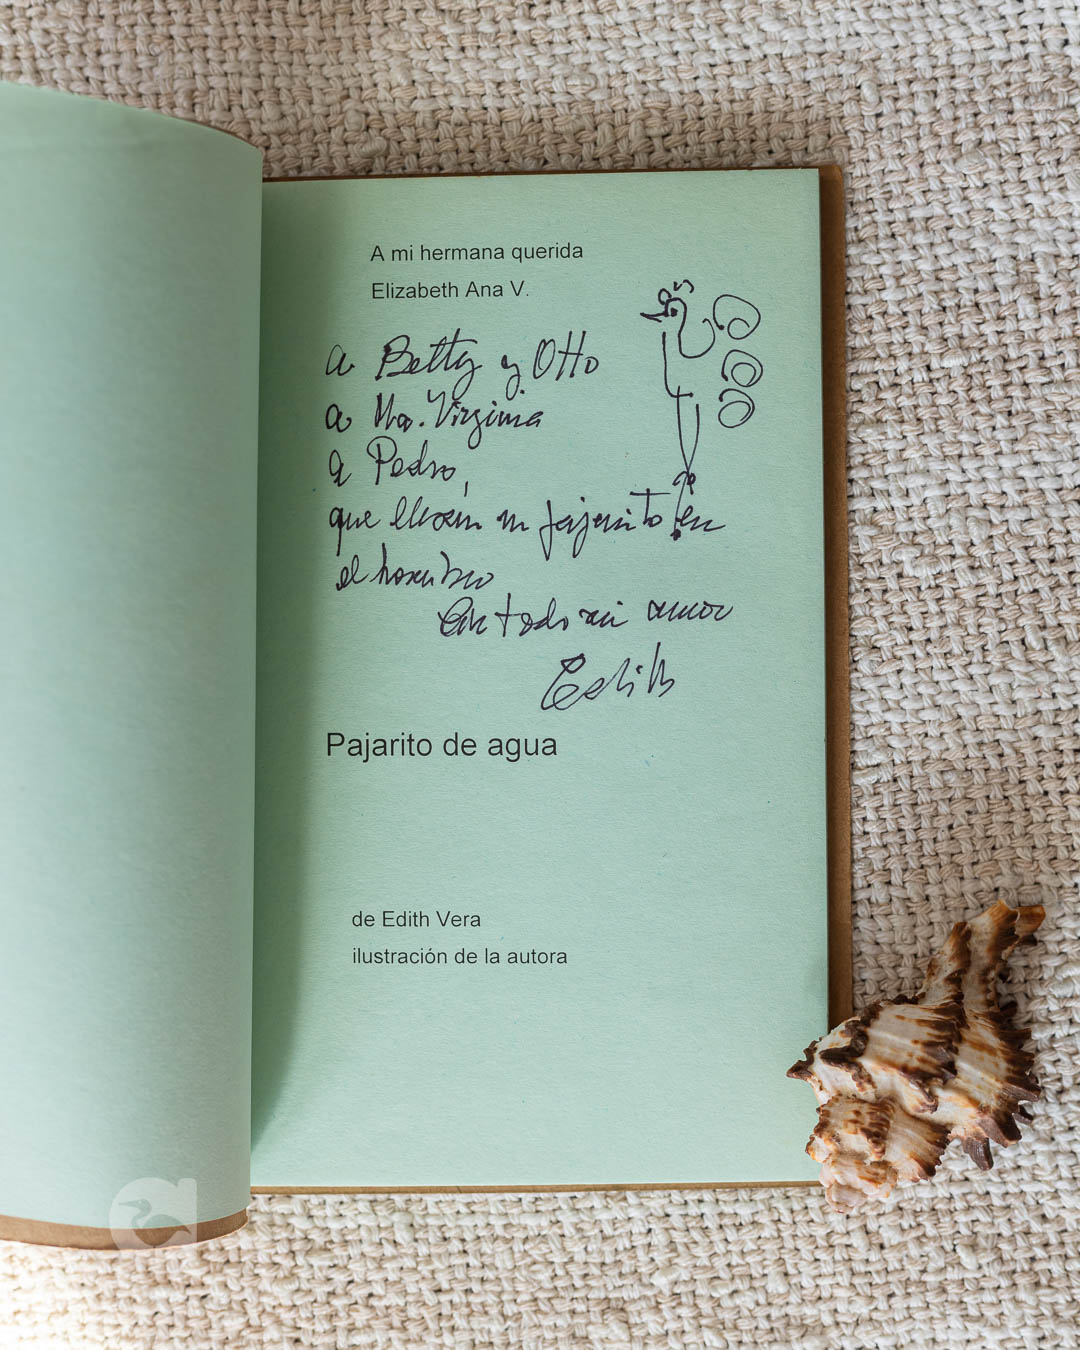 A mi hermana querida
Elizabeth Ana V.
a Betty y Otto
a Ma. Virginia
a Pedro,
que llevan un pajarito en
el hombro
Con todo mi amor
Edith
Pajarito de agua
de Edith Vera
ilustración de la autora